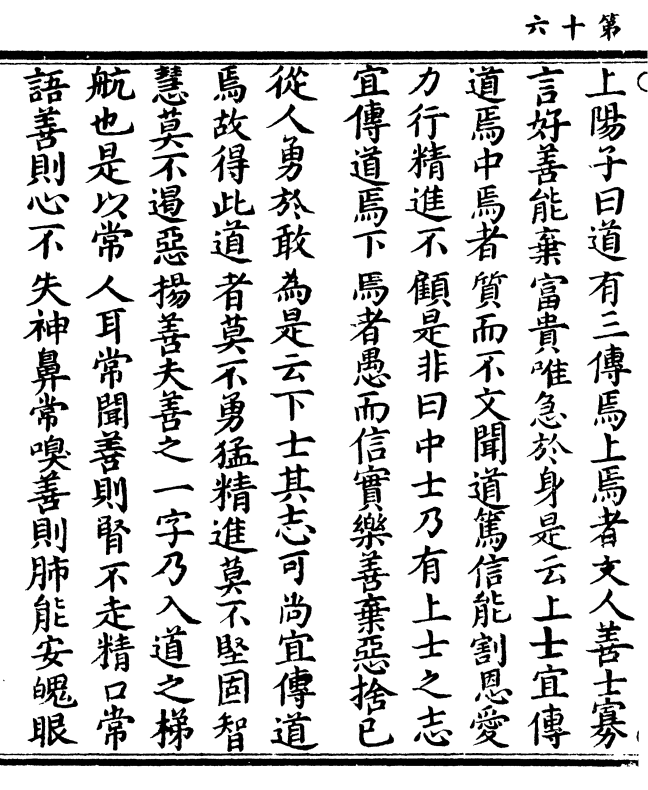 第十六
上陽子曰道有三傳焉上焉者文人善士寡
言好善能棄富貴唯急於身是云上士宜傳
道焉中焉者質而不文聞道篤信能割恩愛
力行精進不顧是非曰中士乃有上士之志
宜傳道焉下焉者愚而信實樂善棄惡捨已
從人勇於敢為是云下士其志可尚宜傳道
焉故得此道者莫不勇猛精進莫不堅固智
慧莫不遏惡揚善夫善之一字乃入道之梯
航也是以常人耳常聞善則腎不走精口常
語善則心不失神鼻常嗅善則肺能安魄眼